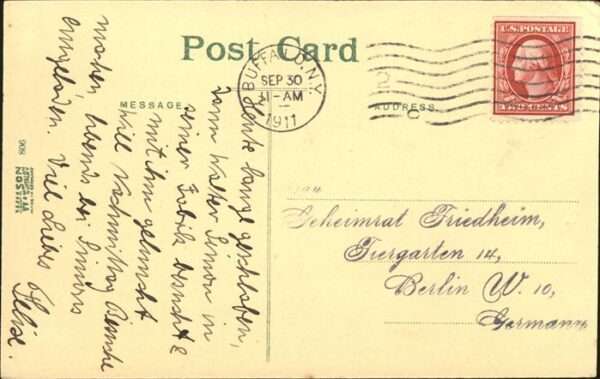 Post Card
MESSAGE
ADDRESS
BUFFALO, N.Y.
SEP 30
11-AM
1911
U.S. POSTAGE
TWO CENTS
Heute lange geschlafen,
dann Walter Simon in
seiner Fabrik besucht &
mit ihm geluncht
Will Nachmittag Besuche
machen, abends bei Simons
eingeladen. Viel Liebes
Frau
Geheimrat Friedheim,
Tiergarten 14,
Berlin W. 10,
Germany
908